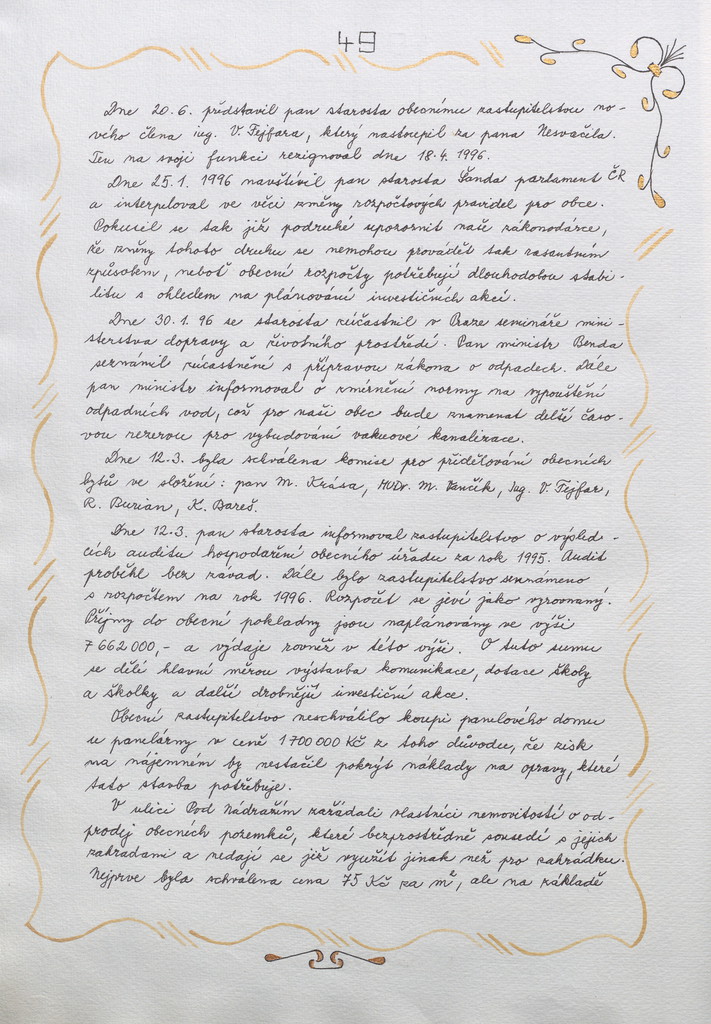 49
Dne 20.6. představil pan starosta obecnímu zastupitelstvu no-
vého člena ing. V. Fejfara, který nastoupil za pana Nesvačila.
Ten na svoji funkci rezignoval dne 18.4. 1996.
Dne 25.1. 1996 navštívil pan starosta Šanda parlament ČR
a interpeloval ve věci změny rozpočtových pravidel pro obce.
Pokusil se tak již podruhé upozornit naše zákonodárce,
že změny tohoto druhu se nemohou provádět tak razantním
způsobem, neboť obecní rozpočty potřebují dlouhodobou stabi-
litu s ohledem na plánování investičních akcí.
Dne 30.1. 96 se starosta zúčastnil v Praze semináře mini-
sterstva dopravy a životního prostředí. Pan ministr Benda
seznámil zúčastnění s přípravou zákona o odpadech. Dále
pan ministr informoval o zmírnění normy na vypouštění
odpadních vod, což pro naši obec bude znamenat delší časo-
vou rezervu pro vybudování vakuové kanalizace.
Dne 12.3. byla schválena komise pro přidělování obecních
bytů ve složení: pan M. Krása, MUDr. M. Vančík, Ing. V. Fejfar,
R. Burian, K. Bareš.
Dne 12.3. pan starosta informoval zastupitelstvo o výsled-
cích auditu hospodaření obecního úřadu za rok 1995. Audit
proběhl bez závad. Dále bylo zastupitelstvo seznámeno
s rozpočtem na rok 1996. Rozpočet se jeví jako vyrovnaný.
Příjmy do obecní pokladny jsou naplánovány ve výši
7 662 000,- a výdaje rovněž v této výši. O tuto sumu
se dělí hlavní měrou výstavba komunikace, dotace školy
a školky a další drobnější investiční akce.
Obecní zastupitelstvo neschválilo koupi panelového domu
u panelárny v ceně 1 700 000 Kč z toho důvodu, že zisk
na nájemném by nestačil pokrýt náklady na opravy, které
tato stavba potřebuje.
V ulici Pod Nádražím zažádali vlastníci nemovitostí o od-
prodej obecních pozemků, které bezprostředně sousedí s jejich
zahradami a nedají se již využít jinak než pro zahrádku.
Nejprve byla schválena cena 75 Kč za m², ale na základě